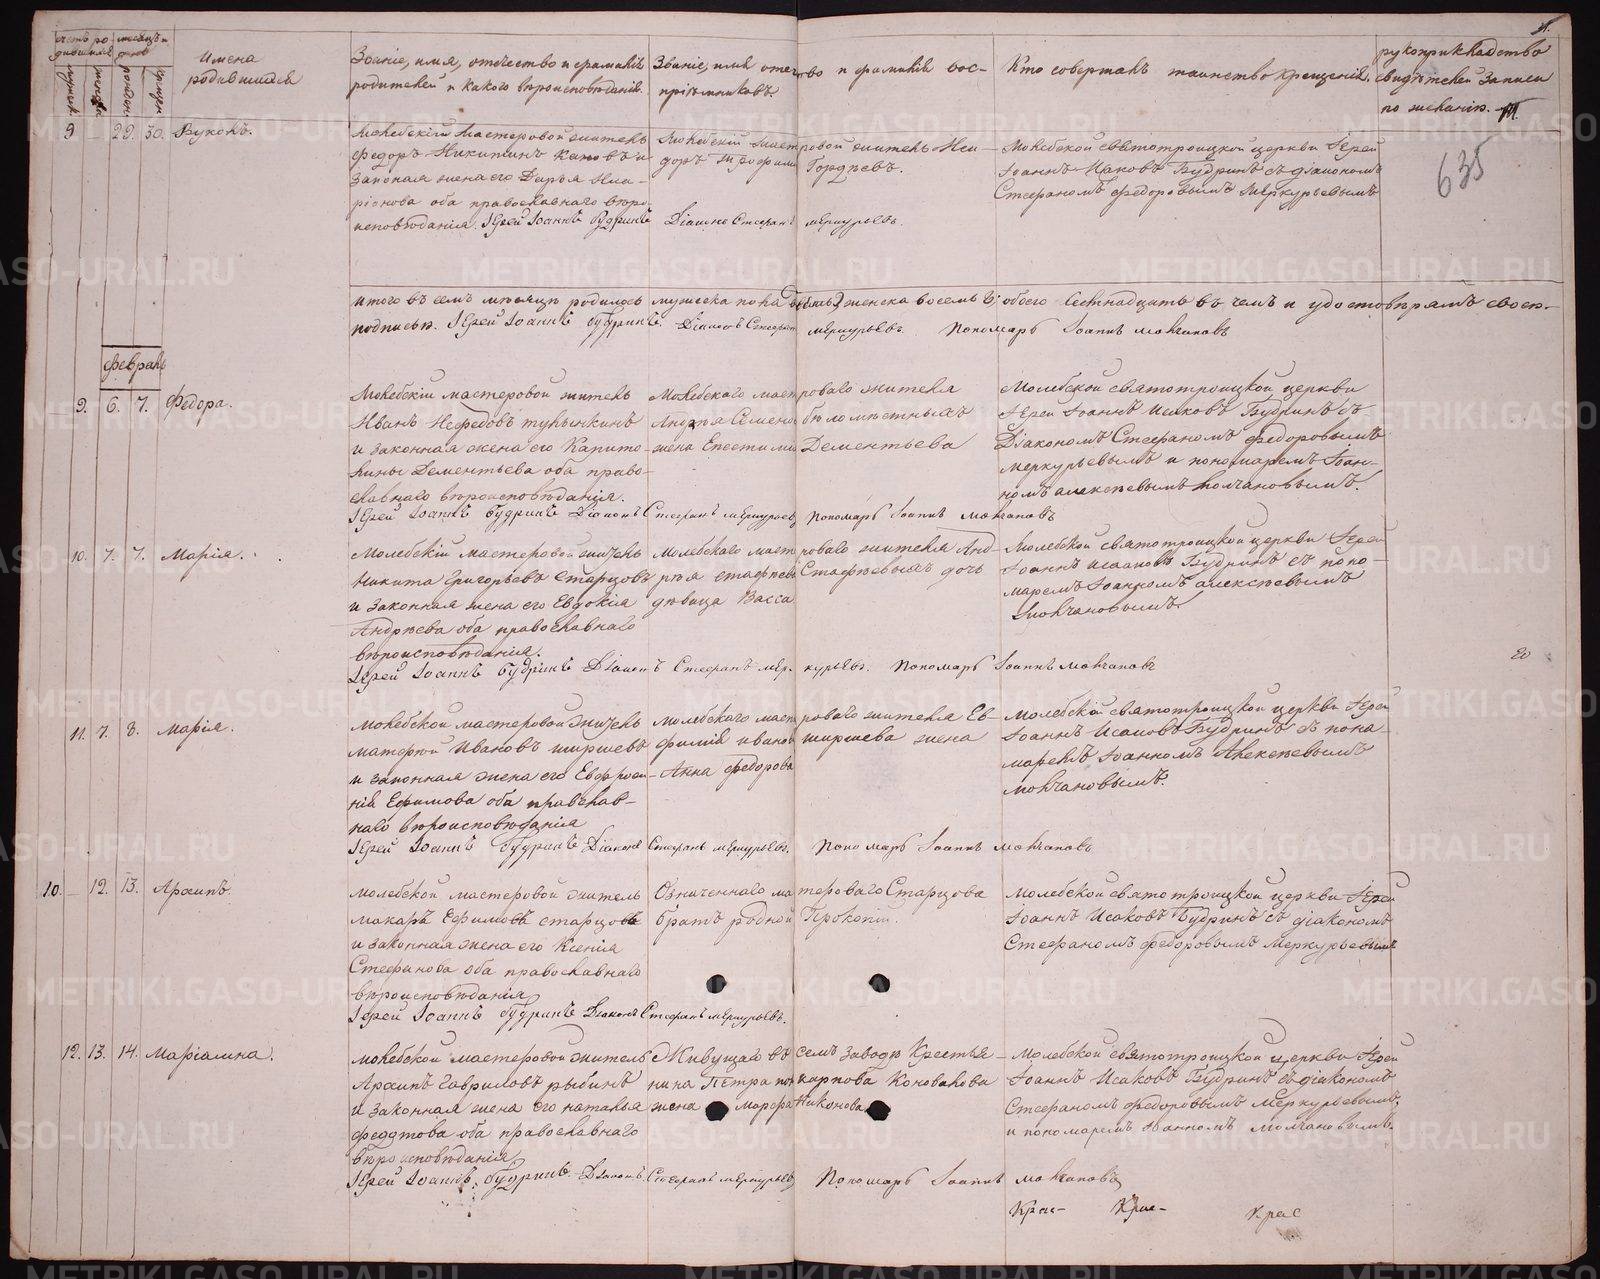 счетъ родившихся
мѣсяцъ и день
мужеска
женска
рожденія
крещен.
Имена родившихся
Званіе, имя, отчество и фамилія
родителей и какого вѣроисповѣданія.
Званіе, имя отечество и фамилія вос-
пріемниковъ.
Кто совершалъ таинство крещенія.
рукоприкладство
свидѣтелей записи
по желанію.
635
9 – 29. 30. Вуколъ.
Молебскій мастеровой житель
Федоръ Никитинъ и
законная жена его Дарья Ила-
ріонова оба православнаго вѣро-
исповѣданія. Іерей Іоаннъ Будринъ Діаконъ Стефанъ Меркурьевъ.
Молебскій мастеровой житель
Гордѣевъ.
Молебской святотроицкой церкви Іерей
Іоаннъ Исаковъ Будринъ съ діакономъ
Стефаномъ Федоровымъ Меркурьевымъ
итого въ семъ мѣсяцѣ родилось мужеска пола женска восемь; обоего въ чемъ и удостовѣряемъ своею
подписью. Іерей Іоаннъ Будринъ. Діаконъ Стефанъ Меркурьевъ. Пономарь Іоаннъ Молчановъ
Февраль
9. 6. 7. Федора.
Молебскій мастеровой житель
Иванъ Нефедовъ
и законная жена его Капито-
лина Дементьева оба право-
славнаго вѣроисповѣданія.
Молебскаго мастероваго жителя
Андрея Семенова бѣломѣстныхъ
жена Епестимія Дементьева
Молебской святотроицкой церкви
Іерей Іоаннъ Исаковъ Будринъ съ
Діакономъ Стефаномъ Федоровымъ
Меркурьевымъ и пономаремъ Іоан-
номъ Алексѣевымъ Молчановымъ.
Іерей Іоаннъ Будринъ Діаконъ Стефанъ Меркурьевъ Пономарь Іоаннъ Молчановъ
10. 7. 7. Марія.
Молебскій мастеровой житель
Никита Григорьевъ Старцовъ
и законная жена его Евдокія
Андреева оба православнаго
вѣроисповѣданія.
Молебскаго мастероваго жителя Анд-
рѣя Стафѣевыхъ дочь
дѣвица Васса
Молебской святотроицкой церкви Іерей
Іоаннъ Исааковъ Будринъ съ поно-
маремъ Іоанномъ Алексѣевымъ
Молчановымъ.
Іерей Іоаннъ Будринъ Діаконъ Стефанъ Меркурьевъ. Пономарь Іоаннъ Молчановъ
11. 7. 8. Марія.
Молебской мастеровой житель
Матефей Ивановъ Ширшевъ
и законная жена его Евфроси-
нія Ефимова оба православ-
наго вѣроисповѣданія
Молебскаго мастероваго жителя Ев-
фимія Иванова Ширшева жена
Анна Федорова
Молебской святотроицкой церкви Іерей
Іоаннъ Исаковъ Будринъ съ пона-
маремъ Іоанномъ Алексѣевымъ
Молчановымъ.
Іерей Іоаннъ Будринъ Діаконъ Стефанъ Меркурьевъ. Пономарь Іоаннъ Молчановъ
10. – 12. 13. Архипъ.
Молебской мастеровой житель
Макаръ Ефимовъ Старцовъ
и законная жена его Ксенія
Стефанова оба православнаго
вѣроисповѣданія
Означеннаго мастероваго Старцова
братъ родной Прокопій.
Молебской святотроицкой церкви Іерей
Іоаннъ Исаковъ Будринъ съ діакономъ
Стефаномъ Федоровымъ Меркурьевымъ
Іерей Іоаннъ Будринъ Діаконъ Стефанъ Меркурьевъ.
12. 13. 14. Маріамна.
Молебской мастеровой житель
Архипъ Гавриловъ Рыбинъ
и законная жена его Наталья
Федотова оба православнаго
вѣроисповѣданія
Живущая въ семъ заводѣ Крестья-
нина Петра Поликарпова Коновалова
жена Марфа Никонова
Молебской святотроицкой церкви Іерей
Іоаннъ Исаковъ Будринъ съ діакономъ
Стефаномъ Федоровымъ Меркурьевымъ,
и пономаремъ Іоанномъ Молчановымъ.
Іерей Іоаннъ Будринъ. Діаконъ Стефанъ Меркурьевъ Пономарь Іоаннъ Молчановъ
METRIKI.GASO-URAL.RU